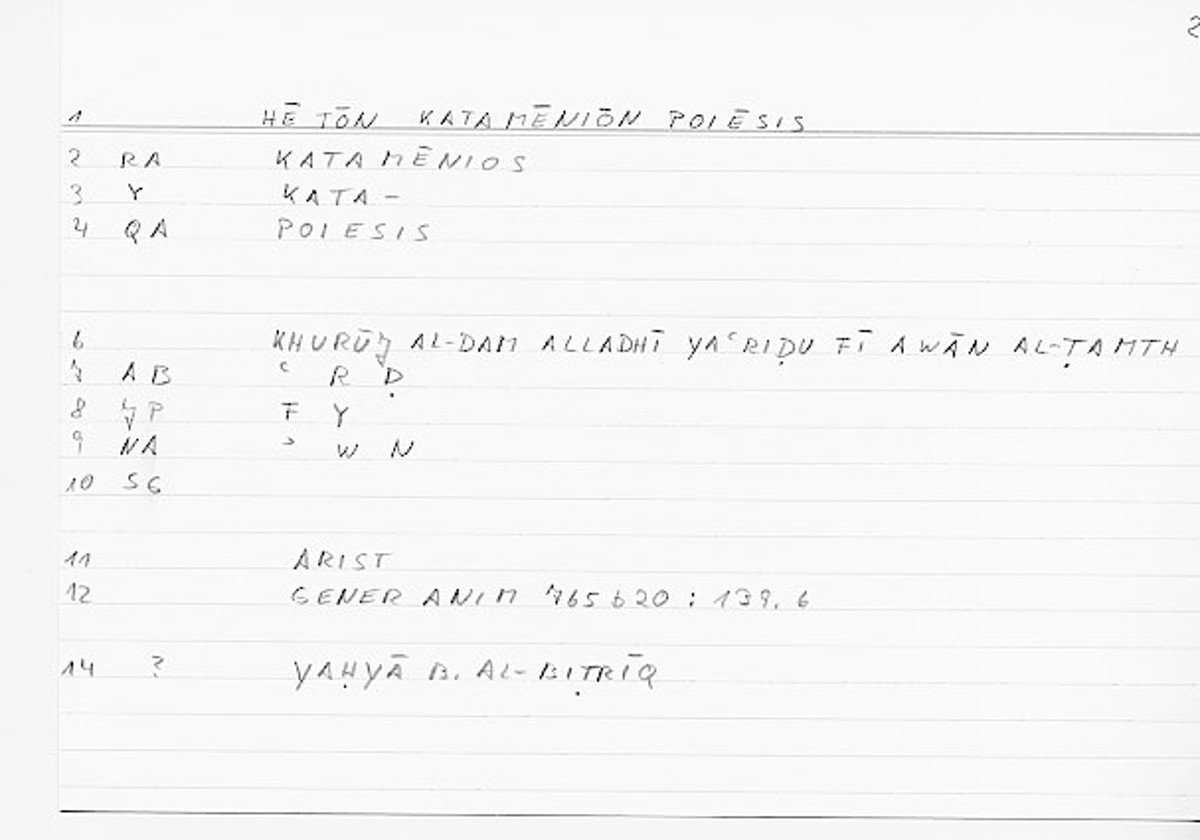 2
1 HĒ TŌN KATAMĒNIŌN POIĒSIS
2 RA KATAMĒNIOS
3 Y KATA-
4 QA POIESIS
6 KHURŪJ AL-DAM ALLADHĪ YAʿRIḌU FĪ AWĀN AL-ṬAMTH
7 AB ʿ R Ḍ
8 JP F Y
9 NA ʾ W N
10 SG
11 ARIST
12 GENER ANIM 765 b 20 : 139. 6
14 ? YAḤYĀ B. AL-BIṬRĪQ